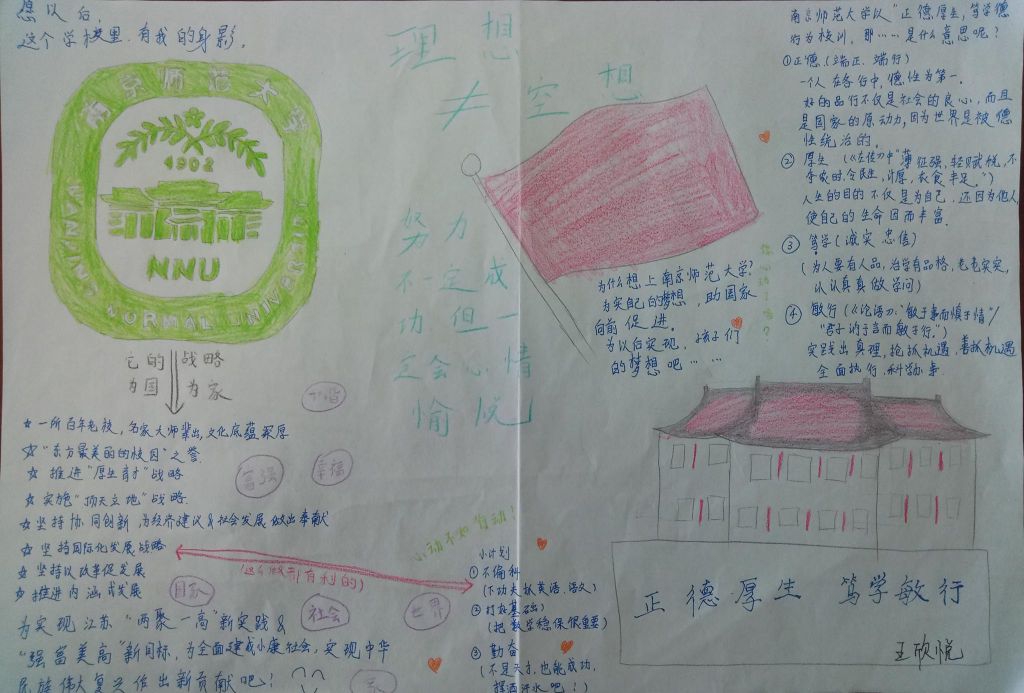 愿以后,
这个学校里,有我的身影。
南京师范大学
1902
NNU
NANJING NORMAL UNIVERSITY
它的战略
为国 为家
☆一所百年老校,名家大师辈出,文化底蕴深厚
☆"东方最美丽的校园"之誉
☆推进"厚生育才"战略
☆实施"顶天立地"战略
☆坚持协同创新,为经济建设&社会发展做出奉献
☆坚持国际化发展战略
☆坚持以改革促发展
☆推进内涵式发展
为实现江苏"两聚一高"新实践&
"强富美高"新目标,为全面建成小康社会,实现中华
民族伟大复兴作出新贡献吧!
富强
幸福
国家
社会
世界
理想
≠空想
努力
不一定成
功但一
定会心情
愉悦
为什么想上南京师范大学?
为实自己的梦想,助国家
向前促进。
为以后实现,孩子们
的梦想吧……
心动不如行动!
小计划
①不偏科
(下功夫抓英语、语文)
②打好基础
(把数学稳保很重要)
③勤奋
(不是天才,也能成功,
挥洒汗水吧!)
南京师范大学以"正德厚生,笃学敏
行为校训,那……是什么意思呢?
①正德(端正、端行)
一个人在各行中,德性为第一。
好的品行不仅是社会的良心,而且
是国家的原动力,因为世界是被德
性统治的。
②厚生(《左传》中"薄征强,轻赋税,不
夺农时,令民生,计厚,衣食丰足。")
人生的目的不仅是为自己,还因为他人
使自己的生命因而丰富
③笃学(诚实 忠信)
(为人要有人品,治学有品格,老老实实,
认认真真做学问)
④敏行(《论语》"敏于事而慎于情"/
"君子讷于言而敏于行。")
实践出真理,抢抓机遇,善抓机遇
全面执行,科学办事
正德厚生 笃学敏行
王欣悦